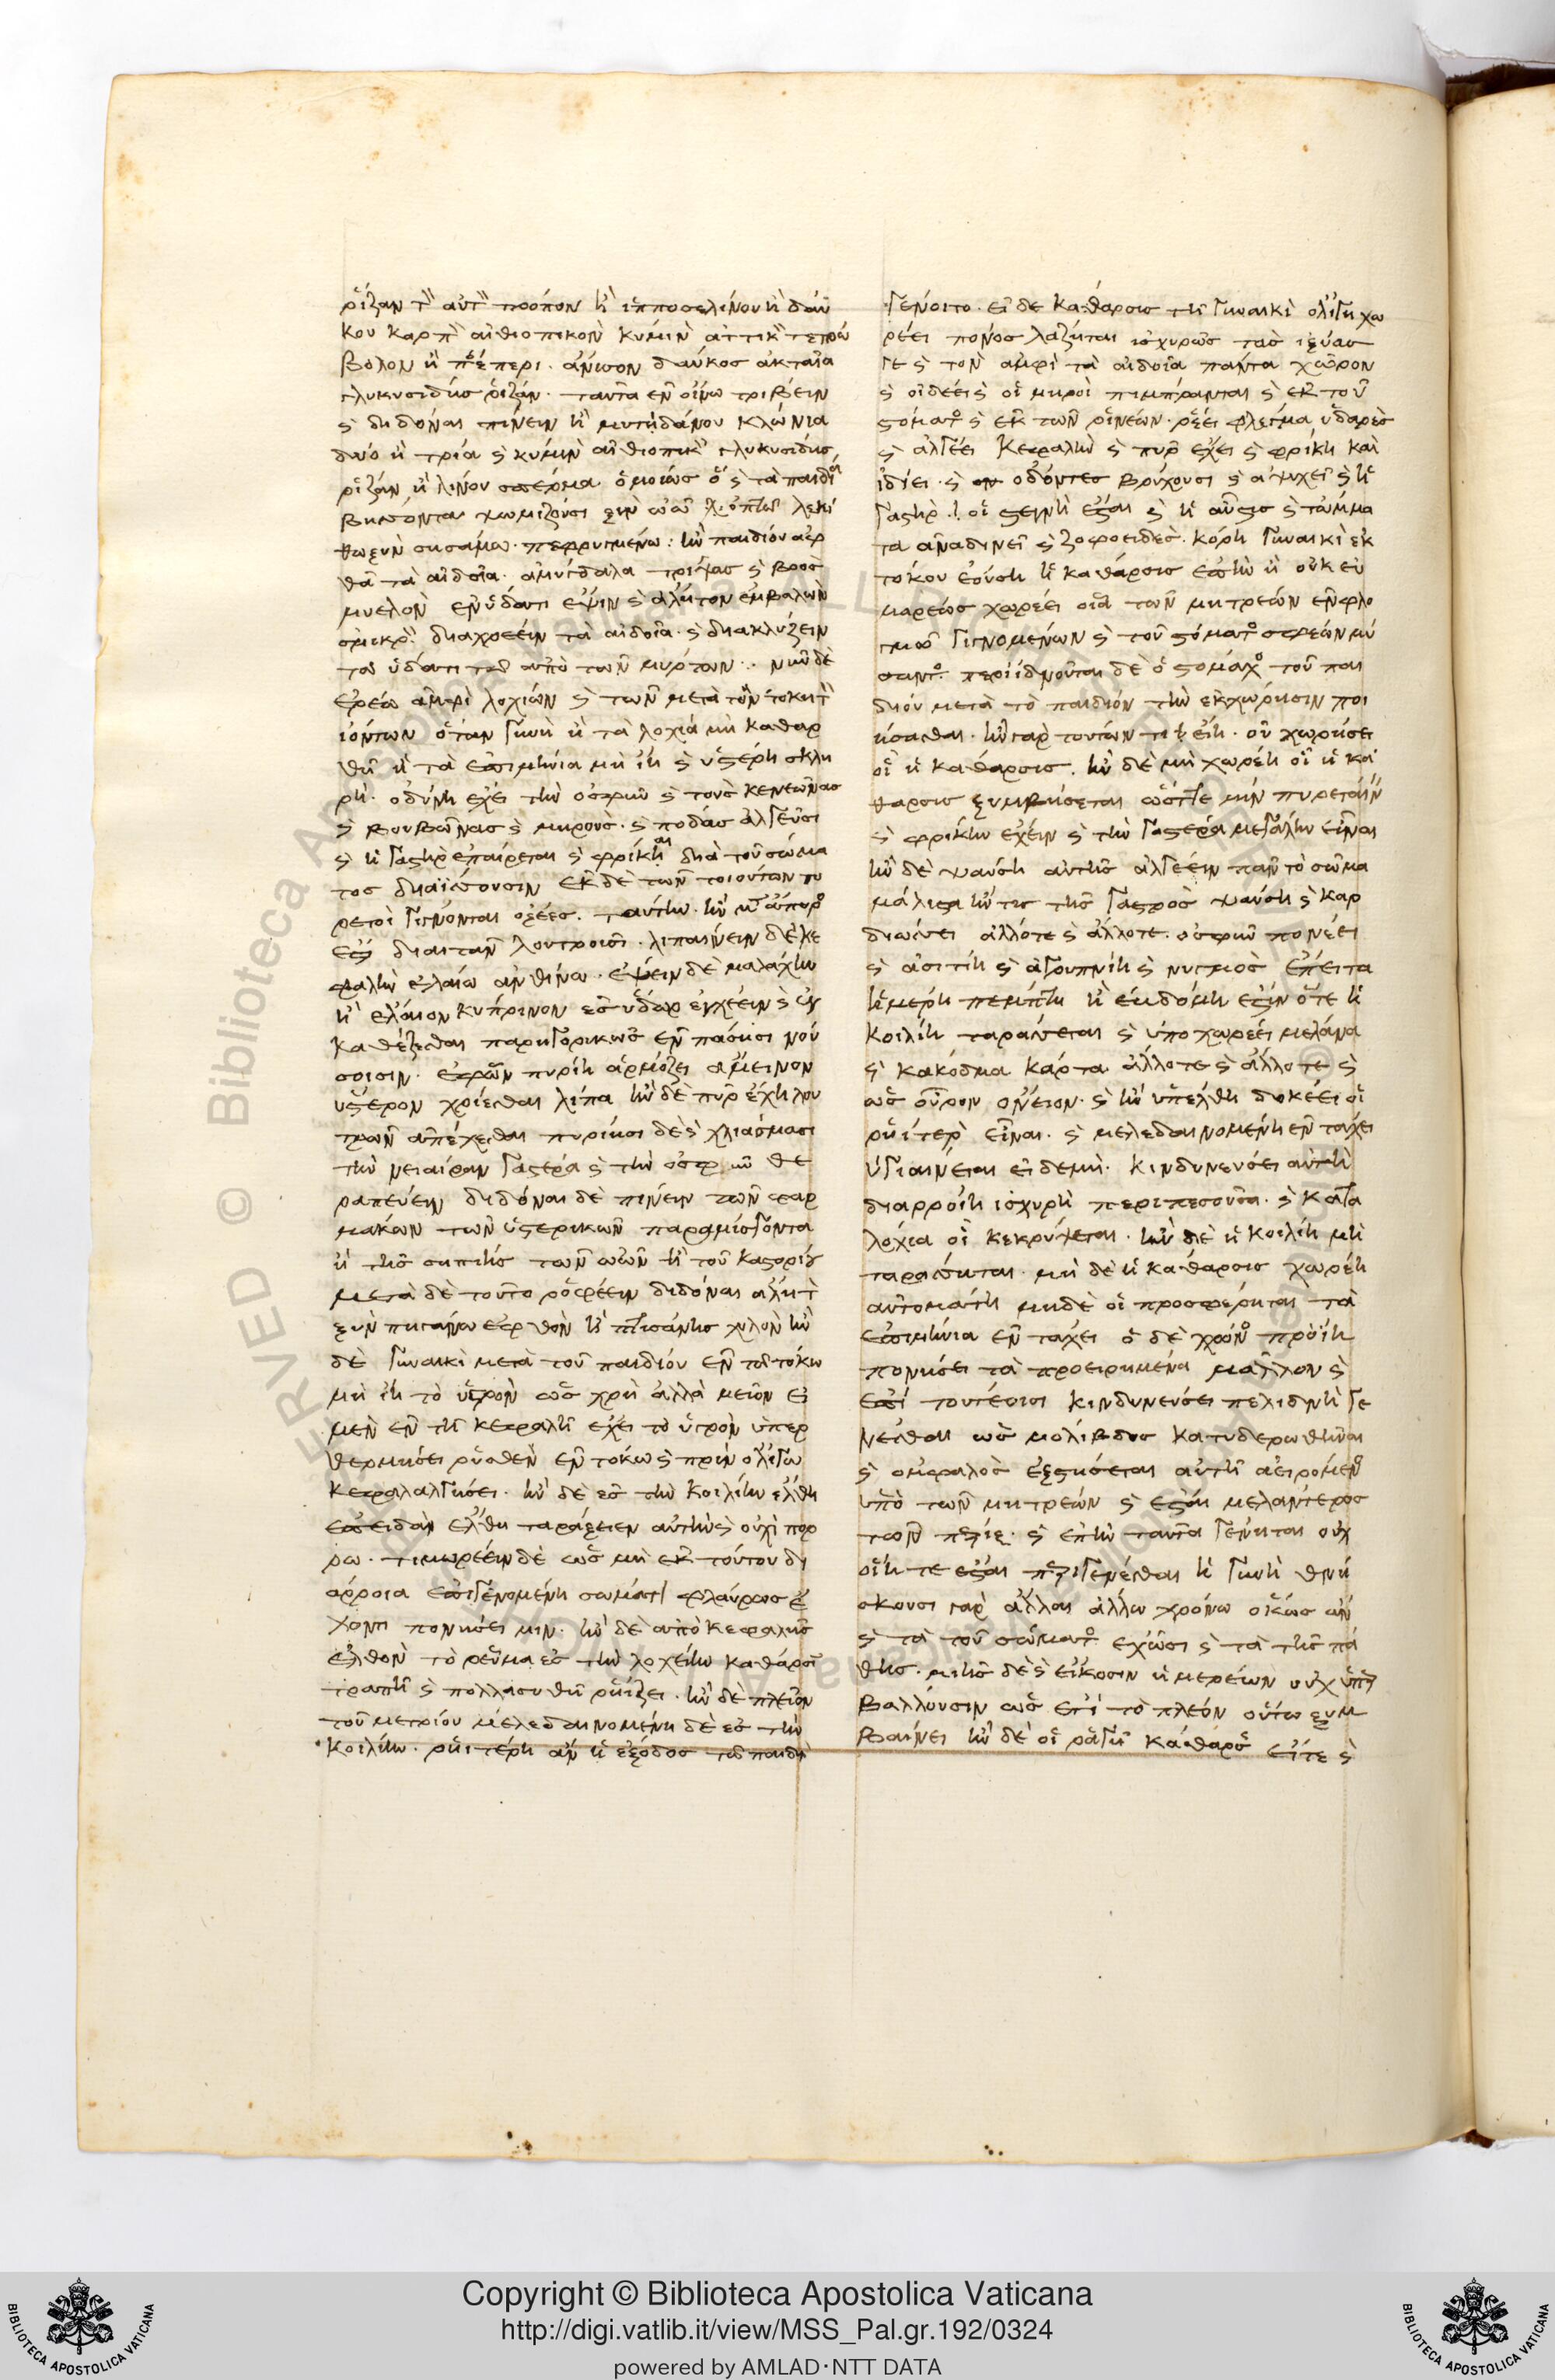 ῥίζαν τὸν αὐτὸν τρόπον ἢ ἱπποσελίνου ἢ δαύ
κου καρπὸν αἰθιοπικὸν κύμινον ἀττικὸν τετρώ
βολον ἢ πέπερι. ἄνισον δαῦκος ἀκταῖα
γλυκυσίδης ῥίζαν. ταῦτα ἐν οἴνω τρίβειν
ϗ διδόναι πίνειν ἢ
δύο ἢ τρία ϗ κύμινον αἰθιοπικὸν γλυκυσίδης
ῥίζαν ἢ λίνου σπέρμα ὁμοίως ϗ τὰ παιδία
βήσσοντα ψωμίζουσι ξὺν λεκί
θω ξὺν σησάμω πεφρυγμένω: ἢν παιδίου
τὰ αἰδοῖα. ἀμύγδαλα τρίψας ϗ βοὸς
μυελὸν ἐν ὕδατι ἕψειν ϗ ἄλητον ἐμβαλὼν
σμικρὸν διαχρέειν τὰ αἰδοῖα. ϗ διακλύζειν
τῶ ὕδατι τῶ ἀπὸ τῶν μύρτων: νῦν δὲ
ἐρέω ἀμφὶ λοχίων ϗ τῶν μετὰ τὸν τόκον
ἰόντων ὅταν γυνὴ ἢ τὰ λοχία μὴ καθαρ
θῆ ἢ τὰ ἐπιμήνια μὴ ἴη ϗ ὑστέρη σκλη
ρή. ὀδύνη ἔχει τὴν ὀσφὺν ϗ τοὺς κενεῶνας
ϗ βουβῶνας ϗ μηροὺς. ϗ πόδας ἀλγεῦσι
ϗ ἡ γαστὴρ ἐπαίρεται ϗ φρίκαι διὰ τοῦ σώμα
τος διαΐσσουσιν ἐκ δὲ τῶν τοιούτων πυ
ρετοὶ γίγνονται ὀξέες. ταύτην. ἢν μὲν ἄπυρος
ἔη διαιτᾶν λουτροῖσι. λιπαίνειν δὲ κε
φαλὴν ἐλαίω ἀνηθίνω. ἕψειν δὲ μαλάχην
ἢ ἔλαιον κύπρινον ἐς ὕδωρ ἐγχέειν ϗ ἐγ
καθέζεσθαι παρηγορικῶς ἐν πάσησι νού
σοισιν. ἐφ' ὧν πυρίη ἁρμόζει ἄμεινον
ὕστερον χρίεσθαι λίπα ἢν δὲ πῦρ ἔχη λου
τρῶν ἀπέχεσθαι πυρίησι δὲ ϗ χλιάσμασι
τὴν νείαιραν γαστέρα ϗ τὴν ὀσφὺν θε
ραπεύειν διδόναι δὲ πίνειν τῶν φαρ
μάκων τῶν ὑστερικῶν παραμίσγοντα
ἢ τῆς σηπίης τῶν ὠῶν ἢ τοῦ καστορίου
μετὰ δὲ τοῦτο ῥοφέειν διδόναι ἄλητον
ξὺν πηγάνω ἑφθὸν ἢ πτισάνης χυλὸν ἢν
δὲ γυναικὶ μετὰ τοῦ παιδίου ἐν τῶ τόκω
μὴ ἴη τὸ ὑγρὸν ὡς χρὴ ἀλλὰ μεῖον εἰ
μὲν ἐν τῆ κεφαλῆ ἔχει τὸ ὑγρὸν ὑπερ
θερμήσει ῥυὲν ἐν τόκω ϗ πρὶν ὀλίγω
κεφαλαλγήσει. ἢν δὲ ἐς τὴν κοιλίην ἔλθη
ἐπειδὰν ἔλθη ταράξειεν αὐτὴν ϗ οὐχὶ πόρ
ρω. τιμωρέειν δὲ ὡς μὴ ἐκ τούτου δι
άρροια ἐπιγενομένη σώματι φλαύρως ἔ
χοντι πονήσει μιν. ἢν δὲ ἀπὸ κεφαλῆς
ἐλθὸν τὸ ῥεῦμα ἐς τὴν λοχείην κάθαρσιν
τραπῆ ϗ πολλὴ συθῆ ῥηΐζει. ἢν δὲ πλεῖον
τοῦ μετρίου μελεδαινομένη δὲ ἐς τὴν
κοιλίην. ῥηιτέρη ἂν ἡ ἔξοδος τῶ παιδίω
γένοιτο. εἰ δὲ κάθαρσις τῆ γυναικὶ ὀλίγη χω
ρέει πόνος λάζηται ἰσχυρῶς τὰς ἰξύας
τε ϗ τὸν ἀμφὶ τὰ αἰδοῖα πάντα χῶρον
ϗ οἰδέει ϗ οἱ μηροὶ πίμπρανται ϗ ἐκ τοῦ
στόματος ϗ ἐκ τῶν ῥινέων. ῥέει φλέγμα ὑδαρὲς
ϗ ἀλγέει κεφαλὴν ϗ πῦρ ἔχει ϗ φρίκη καὶ
ἰδίει. ϗ οἱ ὀδόντες βρύχουσι ϗ ἀψυχεῖ ϗ ἡ
γαστὴρ οἱ στεγνὴ ἔσται ϗ ἡ κύστις ϗ τὤμμα
τα ἀναδινεῖ ϗ ζοφοειδὲς. κόρη γυναικὶ ἐκ
τόκου ἐούση ἡ κάθαρσις ἐπὴν ἢ οὐκ εὐ
μαρέως χωρέει οἷα τῶν μητρέων ἐν φλο
γμῶ γιγνομένων ϗ τοῦ στόματος στερεῶν μύ
σαντος. περιιδνοῦται δὲ ὁ στόμαχος τοῦ παι
δίου μετὰ τὸ παιδίον τὴν ἐκχώρησιν ποι
ήσασθαι. ἢν γὰρ τουτέων τι ἔη. οὐ χωρήσει
οἱ ἡ κάθαρσις. ἢν δὲ μὴ χωρέη οἱ ἡ κά
θαρσις ξυμβήσεται ὥστε μὴν πυρεταίνειν
ϗ φρίκην ἔχειν ϗ τὴν γαστέρα μεγάλην εἶναι
ἢν δὲ ψαύση αὐτῆς ἀλγέειν πᾶν τὸ σῶμα
μάλιστα ἤν τις τῆς γαστρὸς ψαύση ϗ καρ
διώσσει ἄλλοτε ϗ ἄλλοτε. ὀσφὺν πονέει
ϗ ἀσιτίη ϗ ἀγρυπνίη ϗ νυγμὸς ἔπειτα
ἡμέρη πέμπτη ἢ ἑβδόμη ἔστιν ὅτε ἡ
κοιλίη ταράσσεται ϗ ὑποχωρέει μέλανα
ϗ κάκοδμα κάρτα ἄλλοτε ϗ ἄλλοτε ϗ
ὡς οὖρον ὄνειον. ϗ ἢν ὑπέλθη δοκέει οἱ
ῥηίτερον εἶναι. ϗ μελεδαινομένη ἐν τάχει
ὑγιαίνεται εἰ δὲ μὴ. κινδυνεύσει αὐτὴ
διαρροίη ἰσχυρῆ περιπεσοῦσα. ϗ κατὰ
λοχία οἱ κεκρύψεται. ἢν δὲ ἡ κοιλίη μὴ
ταράσσηται. μὴ δὲ ἡ κάθαρσις χωρέη
αὐτομάτη μηδὲ οἱ προσφέρηται τὰ
ἐπιμήνια ἐν τάχει ὁ δὲ χρόνος προΐη
πονήσει τὰ προειρημένα μᾶλλον ϗ
ἐπὶ τουτέοισι κινδυνεύσει πελιδνὴ γε
νέσθαι ὡς μόλιβδος κατυδερωθῆναι
ϗ ὀμφαλὸς ἐκστήσεται αὐτῆ ἀειρόμενος
ὑπὸ τῶν μητρέων ϗ ἔσται μελάντερος
τῶν πέριξ. ϗ ἐπὴν ταῦτα γένηται οὐχ
οἵη τε ἔσται περιγενέσθαι ἡ γυνὴ θνή
σκουσι γὰρ ἄλλαι ἄλλω χρόνω ὅκως ἂν
ϗ τὰ τοῦ σώματος ἔχωσι ϗ τὰ τῆς πά
θης. μιῆς δὲ ϗ εἴκοσιν ἡμερέων οὐχ ὑπερ
βάλλουσιν ὡς ἐπὶ τὸ πλέον οὕτω ξυμ
βαίνει ἢν δὲ οἱ ῥαγῆ κάθαρσις εἴτε ϗ
Copyright © Biblioteca Apostolica Vaticana
http://digi.vatlib.it/view/MSS_Pal.gr.192/0324
powered by AMLAD·NTT DATA